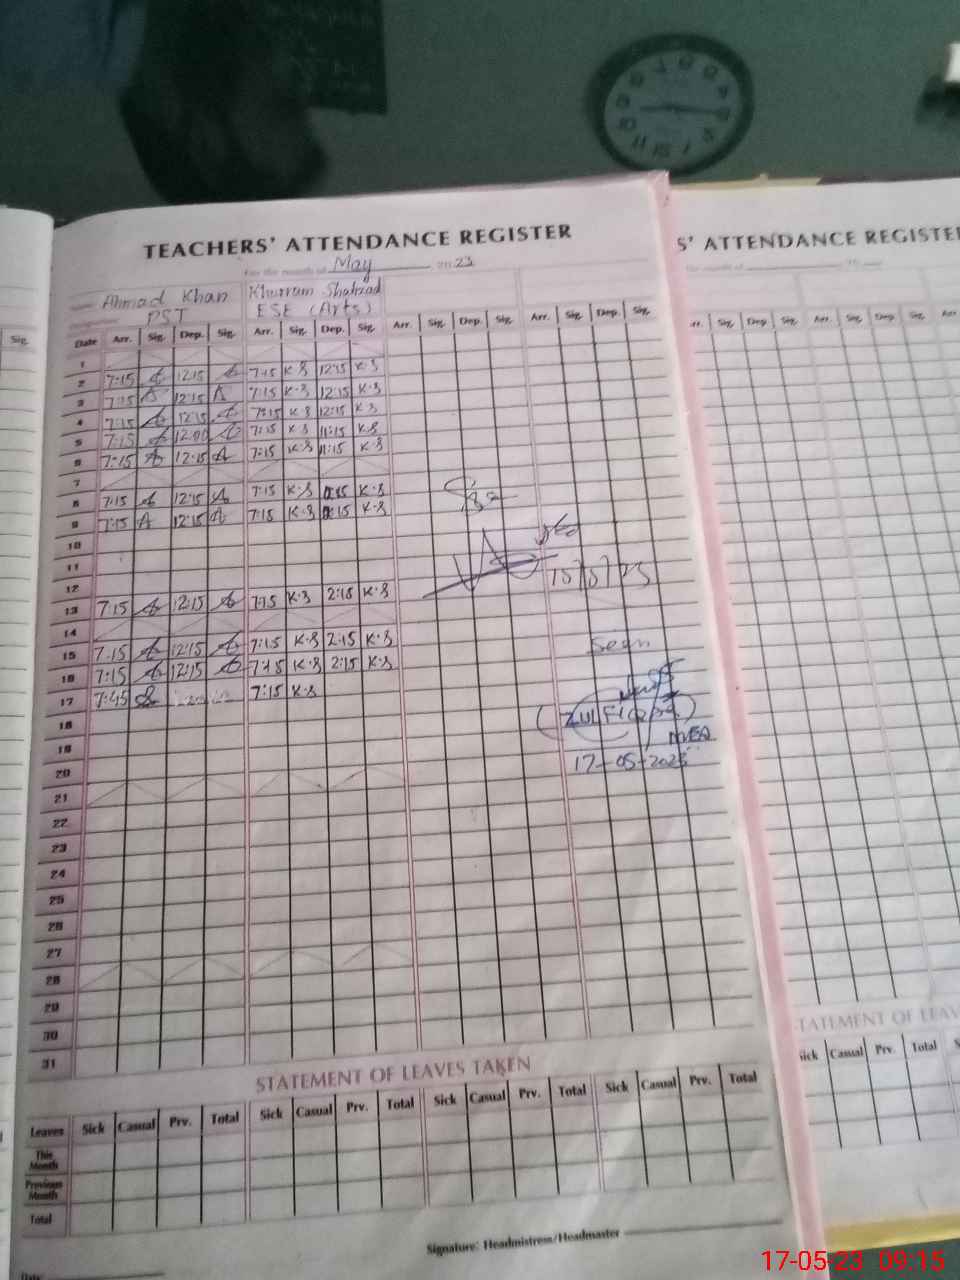 TEACHERS' ATTENDANCE REGISTER
For the month of May 2023
Name Ahmad Khan Khurram Shahzad
PST ESE (Arts)
Date Arr. Sig. Dep. Sig. Arr. Sig. Dep. Sig. Arr. Sig. Dep. Sig. Arr. Sig. Dep. Sig.
1
2 7:15 12:15 7:15 K.S 12:15 K.S
3 7:15 A 12:15 A 7:15 K.S 12:15 K.S
4 7:15 12:15 7:15 K.S 12:15 K.S
5 7:15 12:00 7:15 K.S 11:15 K.S
6 7:15 12:15 A 7:15 K.S 11:15 K.S
7
8 7:15 12:15 A 7:15 K.S K.S
9 7:15 A 12:15 A 7:15 K.S K.S
10
11
12
13 7:15 12:15 7:15 K.S 2:15 K.S
14
15 7:15 12:15 7:15 K.S 2:15 K.S
16 7:15 12:15 7:15 K.S 2:15 K.S
17 7:45 7:15 K.S
18
19
20
21
22
23
24
25
26
27
28
29
30
31
15/5/23
Seen
(ZULFIQAR)
17-05-2023
STATEMENT OF LEAVES TAKEN
Leaves Sick Casual Prv. Total Sick Casual Prv. Total Sick Casual Prv. Total Sick Casual Prv. Total
This Month
Previous Month
Total
Signature: Headmistress/Headmaster
Date
Sig.
S' ATTENDANCE REGISTER
Sig. Dep. Sig. Arr. Sig. Dep. Sig.
TATEMENT OF LEAV
Sick Casual Prv. Total
17-05-23 09:15